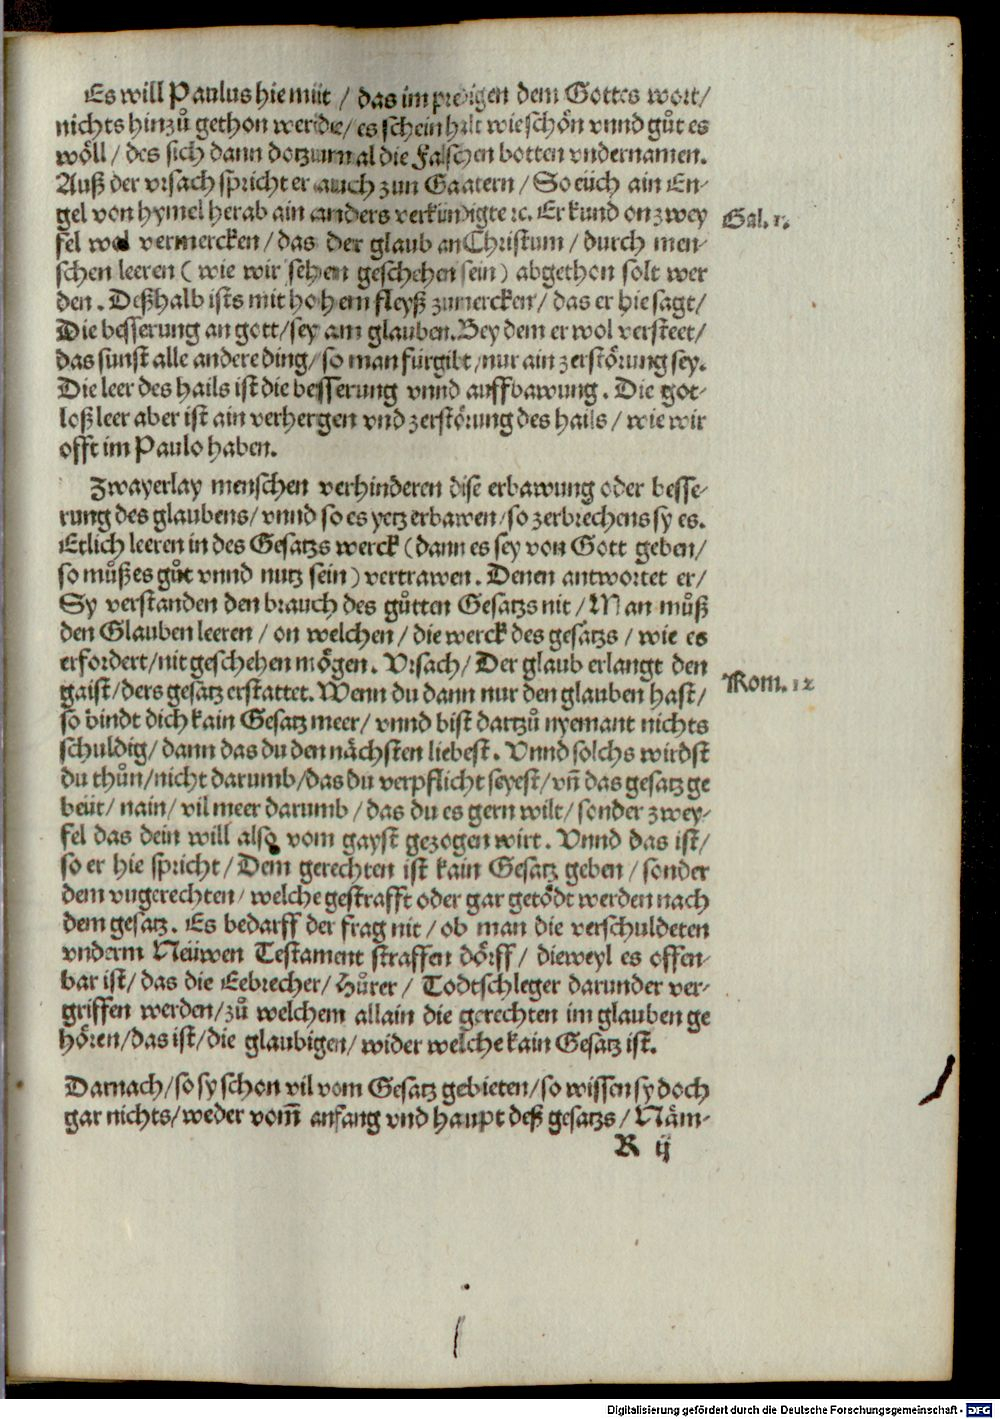 Es will Paulus hiemit / das im predigen dem Gottes wort/
nichts hinzuͦ gethon werde/ es schein halt wie schoͤn vnnd guͦt es
woͤll / des sich dann dotzumal die Falschen botten vndernamen.
Auß der vrsach spricht er auch zun Gaatern / So euͤch ain En-
gel von hymel herab ain anders verkündigte ꝛc. Er kund on zwey
fel wol vermercken / das der glaub an Christum / durch men-
schen leeren ( wie wir sehen geschehen sein ) abgethon solt wer
den. Deßhalb ists mit hohem fleyß zumercken / das er hie sagt/
Die besserung an gott / sey am glauben. Bey dem er wol versteet/
das sunst alle andere ding / so man fürgibt / nur ain zerstoͤrung sey.
Die leer des hails ist die besserung vnnd auffbawung. Die got-
loß leer aber ist ain verhergen vnd zerstoͤrung des hails / wie wir
offt im Paulo haben.
Gal. 1.
Zwayerlay menschen verhinderen dise erbawung oder besse-
rung des glaubens / vnnd so es yetz erbawen / so zerbrechens sy es.
Etlich leeren in des Gesatzs werck ( dann es sey von Gott geben/
so muͦß es guͦt vnnd nutz sein ) vertrawen. Denen antwortet er/
Sy verstanden den brauch des guͦtten Gesatzs nit / Man muͦß
den Glauben leeren / on welchen / die werck des gesatzs / wie es
erfordert / nit geschehen moͤgen. Vrsach / Der glaub erlangt den
gaist / ders gesatz erstattet. Wenn du dann nur den glauben hast/
so bindt dich kain Gesatz meer / vnnd bist dartzuͦ nyemant nichts
schuldig / dann das du den naͤchsten liebest. Vnnd solchs wirdst
du thuͦn / nicht darumb / das du verpflicht seyest / vñ das gesatz ge
beüt / nain / vil meer darumb / das du es gern wilt / sonder zwey-
fel das dein will also vom gayst gezogen wirt. Vnnd das ist/
so er hie spricht / Dem gerechten ist kain Gesatz geben / sonder
dem vngerechten / welche gestrafft oder gar getoͤdt werden nach
dem gesatz. Es bedarff der frag nit / ob man die verschuldeten
vnderm Neüwen Testament straffen doͤrff / dieweyl es offen-
bar ist / das die Eebrecher / Huͦrer / Todtschleger darunder ver-
griffen werden / zuͦ welchem allain die gerechten im glauben ge
hoͤren / das ist / die glaubigen / wider welche kain Gesatz ist.
Rom. 12
Darnach / so sy schon vil vom Gesatz gebieten / so wissen sy doch
gar nichts / weder vom̃ anfang vnd haupt deß gesatzs / Naͤm-
R ij
Digitalisierung gefördert durch die Deutsche Forschungsgemeinschaft - DFG